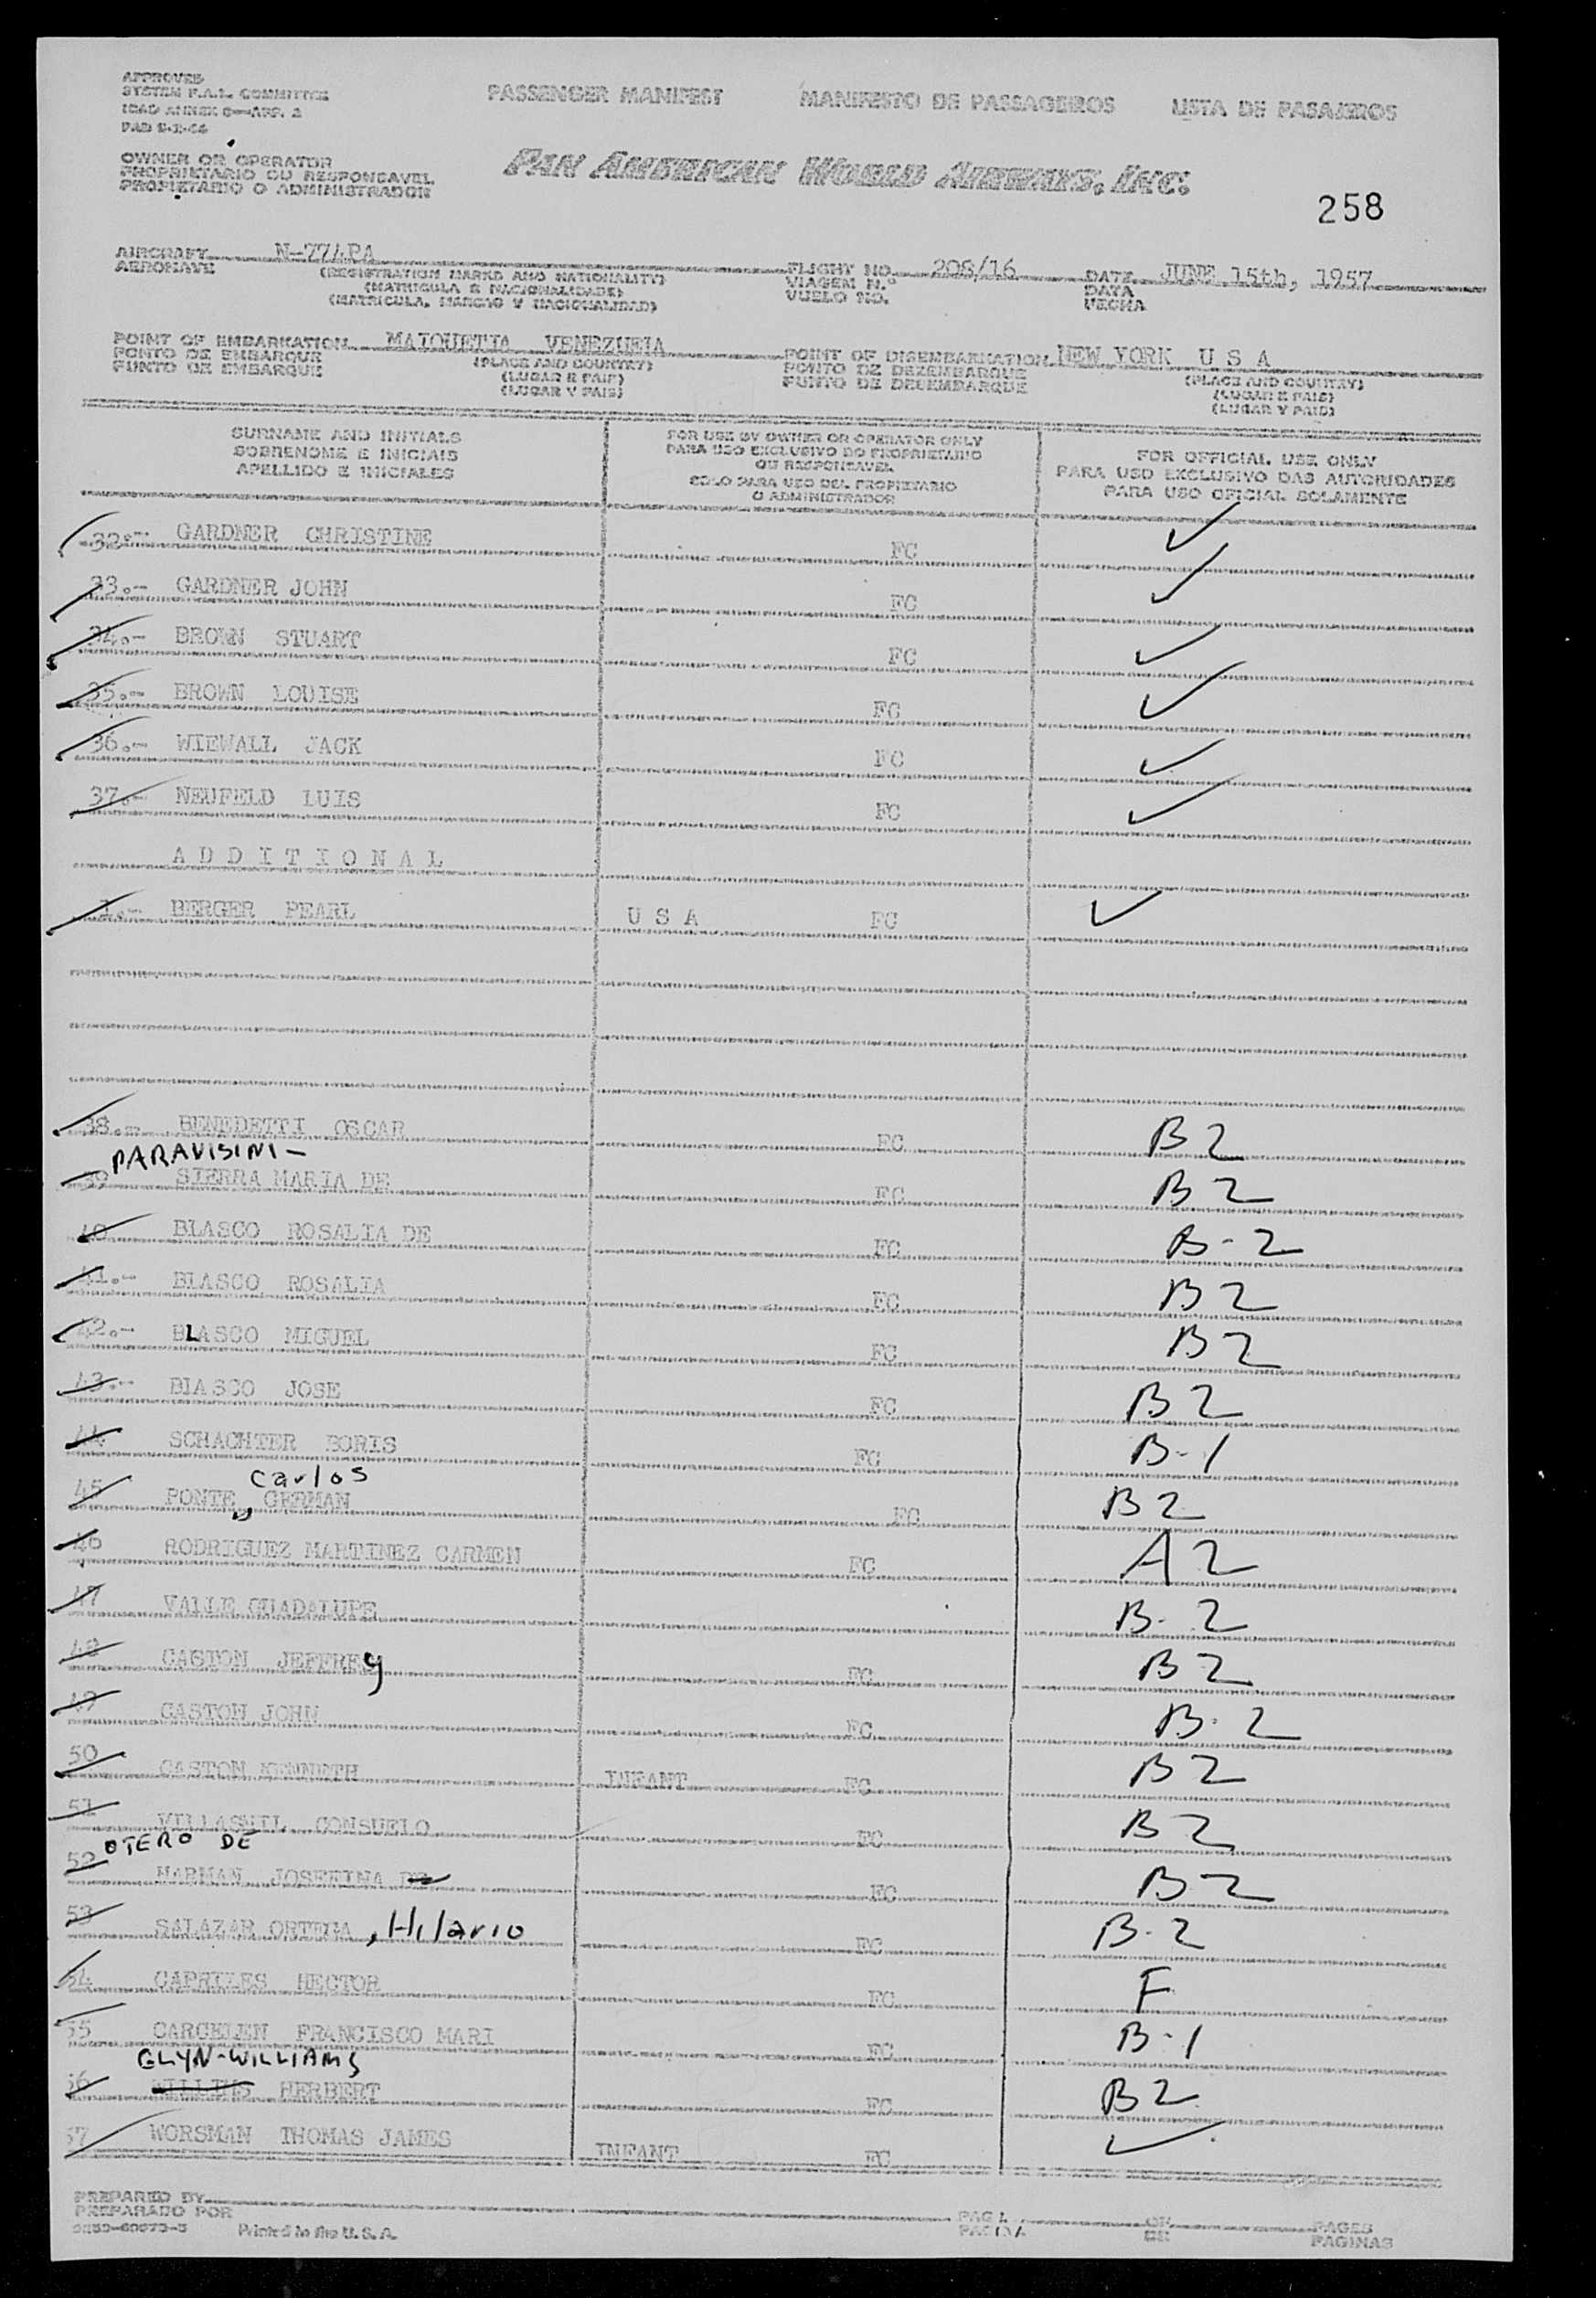 APPROVED
SYSTEM F.A.L. COMMITTEE
ICAO ANNEX 9—APP. 2
PASSENGER MANIFEST MANIFESTO DE PASSAGEIROS LISTA DE PASAJEROS
OWNER OR OPERATOR
PROPRIETARIO OU RESPONSAVEL
PROPIETARIO O ADMINISTRADOR
PAN AMERICAN WORLD AIRWAYS, INC.
258
AIRCRAFT N-774PA FLIGHT NO. 208/16 DATE JUNE 15th, 1957
AERONAVE (REGISTRATION MARKS AND NATIONALITY) VIAGEM N.º DATA
(MATRICULA E NACIONALIDADE) VUELO NO. FECHA
(MATRICULA, MARCAS Y NACIONALIDAD)
POINT OF EMBARKATION MAIQUETIA VENEZUELA POINT OF DISEMBARKATION NEW YORK U S A
PONTO DE EMBARQUE (PLACE AND COUNTRY) PONTO DE DEZEMBARQUE (PLACE AND COUNTRY)
PUNTO DE EMBARQUE (LUGAR E PAIS) PUNTO DE DESEMBARQUE (LUGAR E PAIS)
(LUGAR Y PAIS) (LUGAR Y PAIS)
SURNAME AND INITIALS
SOBRENOME E INICIAIS
APELLIDO E INICIALES
FOR USE BY OWNER OR OPERATOR ONLY
PARA USO EXCLUSIVO DO PROPRIETARIO
OU RESPONSAVEL
SOLO PARA USO DEL PROPIETARIO
O ADMINISTRADOR
FOR OFFICIAL USE ONLY
PARA USO EXCLUSIVO DAS AUTORIDADES
PARA USO OFICIAL SOLAMENTE
32.- GARDNER CHRISTINE FC ✓
33.- GARDNER JOHN FC ✓
34.- BROWN STUART FC ✓
35.- BROWN LOUISE FC ✓
36.- WIEWALL JACK FC ✓
37.- NEUFELD LUIS FC ✓
A D D I T I O N A L
1.- BERGER PEARL U S A FC ✓
38.- BENEDETTI OSCAR FC B2
PARAVISINI -
39 SIERRA MARIA DE FC B2
40 BLASCO ROSALIA DE FC B-2
41.- BLASCO ROSALIA FC B2
42.- BLASCO MIGUEL FC B2
43.- BLASCO JOSE FC B2
44 SCHACHTER BORIS FC B-1
Carlos
45 PONTE, GERMAN FC B2
46 RODRIGUEZ MARTINEZ CARMEN FC A2
47 VALLE GUADALUPE B-2
48 GASTON JEFFREy FC B2
49 GASTON JOHN FC B-2
50 GASTON KENNETH INFANT FC B2
51 VILLASMIL CONSUELO FC B2
OTERO DE
52 MARMAN JOSEFINA DE FC B2
53 SALAZAR ORTEGA, Hilario FC B-2
54 CAPRILES HECTOR FC F
55 CARCELEN FRANCISCO MARI FC B-1
GLYN-WILLIAMS
56 HERBERT FC B2
57 WORSMAN THOMAS JAMES INFANT FC ✓
PREPARED BY PAGE OF PAGES
PREPARADO POR PAGINA DE PAGINAS
Printed in the U.S.A.